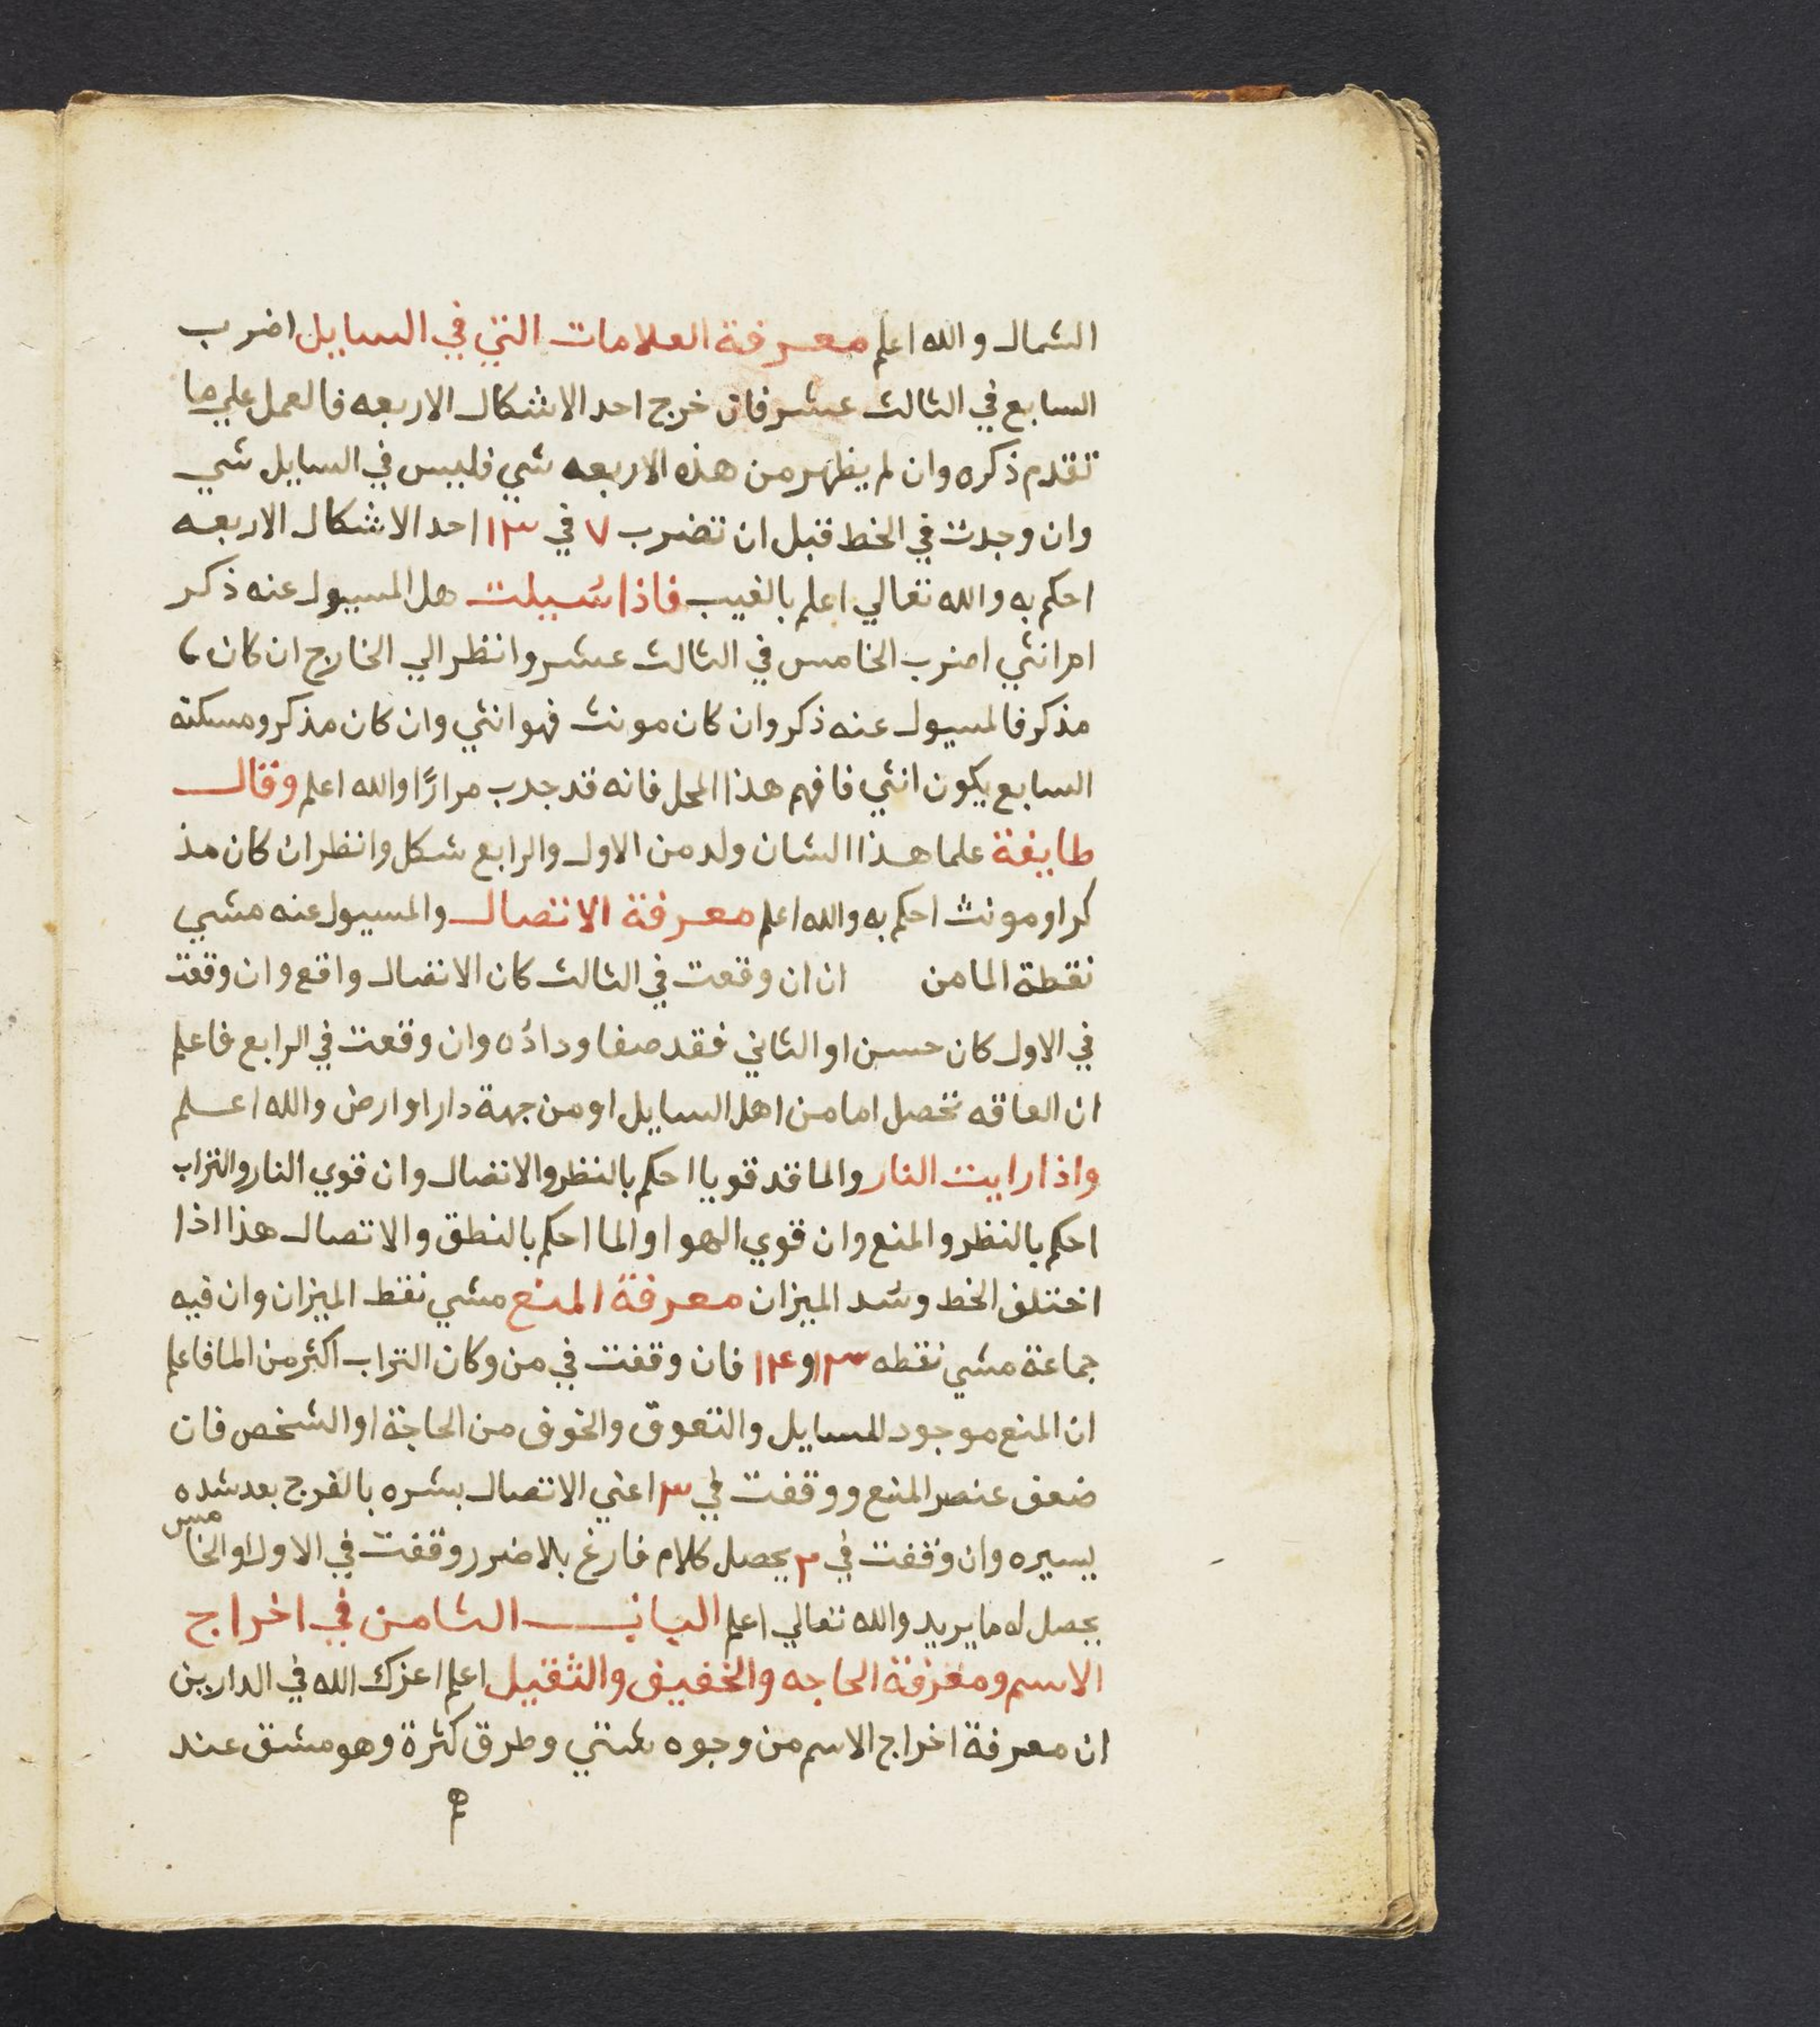 الشمال والله اعلم معرفة العلامات التي في السايل اضرب
السابع في الثالث عشر فان خرج احد الاشكال الاربعه فالعمل علي ما
تقدم ذكره وان لم يظهر من هذه الاربعه شي فليس في السايل شي
وان وجدت في الخط قبل ان تضرب ٧ في ١٣ احد الاشكال الاربعه
احكم به والله تعالي اعلم بالغيب فاذا سُيلت هل المسيول عنه ذكر
ام انثي اضرب الخامس في الثالث عشر وانظر الي الخارج ان كان
مذكر فالمسيول عنه ذكر وان كان مونث فهو انثي وان كان مذكر ومسكنه
السابع يكون انثي فافهم هذا المحل فانه قد جرب مرارًا والله اعلم وقال
طايفة علما هذا الشان ولد من الاول والرابع شكل وانظر ان كان مذ
كر او مونث احكم به والله اعلم معرفة الاتصال والمسيول عنه مشي
نقطة الما من ان ان وقعت في الثالث كان الاتصال واقع وان وقعت
في الاول كان حسن او الثاني فقد صفا وداده وان وقعت في الرابع فاعلم
ان العاقه تحصل اما من اهل السايل او من جهة دار او ارض والله اعلم
واذا رايت النار والما قد قويا احكم بالنظر والاتصال وان قوي النار والتراب
احكم بالنظر والمنع وان قوي الهوا والما احكم بالنطق والاتصال هذا اذا
اختلف الخط وسد الميزان معرفة المنع مشي نقط الميزان وان فيه
جماعة مشي نقطه ١٣ و ١٤ فان وقفت في من وكان التراب اكثر من الما فاعلم
ان المنع موجود للسايل والتعوق والخوف من الحاجة او الشخص فان
ضعف عنصر المنع ووقفت في ٣ اعني الاتصال بشره بالفرج بعد شده
يسيره وان وقفت في ٢ يحصل كلام فارغ بلا ضرر وقفت في الاول او الخامس
يحصل له ما يريد والله تعالي اعلم الباب الثامن في اخراج
الاسم ومعرفة الحاجه والخفيف والثقيل اعلم اعزك الله في الدارين
ان معرفة اخراج الاسم من وجوه شتي وطرق كثرة وهو مشق عند